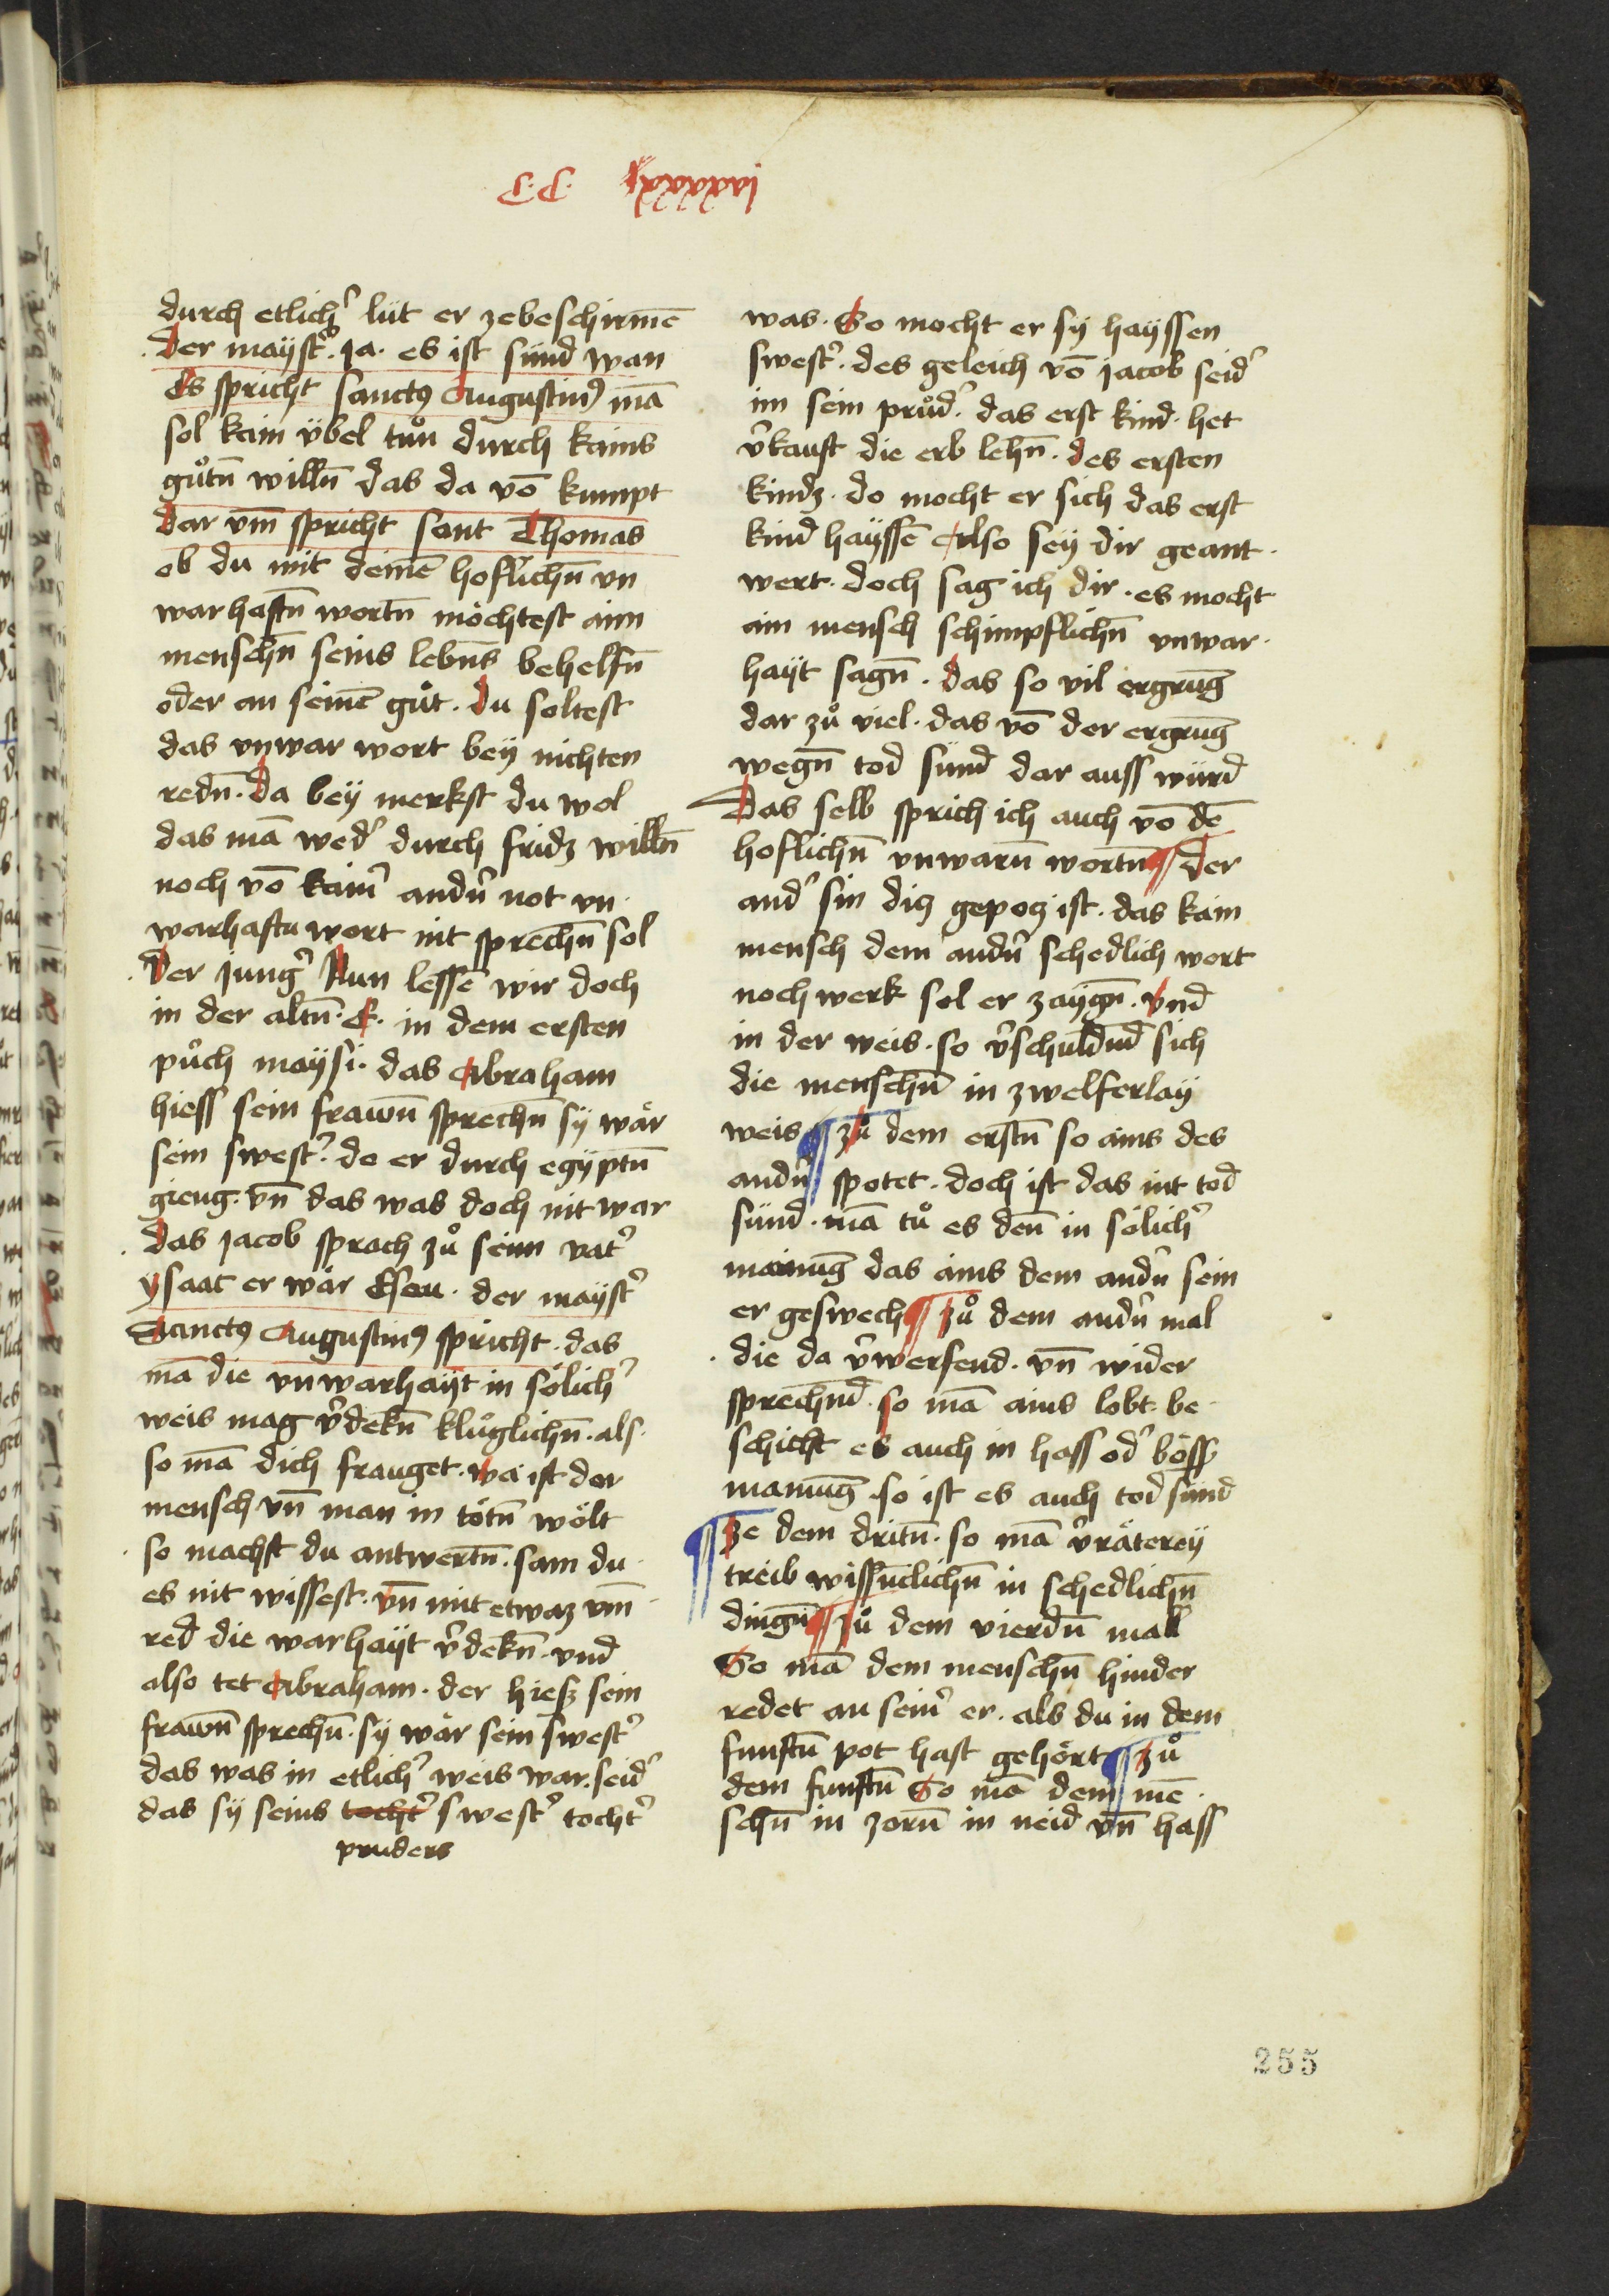 C.C. lxxxxxj
durch etlicħ lüt er zebeschirmē
Der maystˀ. Ja. es ist sünd wan
Es spricht sanctꝰ Augustinꝰ mā
sol kain v̈bel tuͦn durch kains
guͦtn̄ willn̄ das da vō kumpt
Dar vm̄ spricht sant Thomas
ob du mit deinē hoflichn̄ vn
warhaftn̄ wortn̄ möchtest ainn
menschn̄ seins lebn̄s behelfn̄
oder an seinē guͦt. Du soltest
das vnwar wort bey nichten
redn̄. Da bey merkst du wol
das mā wedˀ durch fridz willn̄
noch vō kainˀ andn̄ˀ not vn
warhaftu wort nit sprechn̄ sol
Der jungˀ Nun lessē wir doch
in der altn̄. E. in dem ersten
puͦch maysi. das Abraham
hiess sein frawn̄ sprechn̄ sy wär
sein swestˀ. do er durch egÿptn̄
gieng. vn̄ das was doch nit war
Das jacob sprach zuͦ seinn vatˀ
ysaat er wär Esau. der maystˀ
Sanctꝰ Augustinꝰ spricht. das
mā die vnwarhayt in sölichˀ
weis mag vˀdekn̄ kluͦglichn̄. als.
so mā dich frauget. wa ist der
mensch vn̄ man in tötn̄ wölt
so machst du antwertn̄. sam du
es nit wissest. vn̄ mit etwaz vm̄
red die warhayt vˀdekn̄. vnd
also tet Abraham. der hiesz sein
frawn̄ sprechn̄. sy wär sein swestˀ
das was in etlichˀ weis war. seidˀ
das sy seins tochtˀ swestˀ tochtˀ
pruders
was. So mocht er sy hayssen
swestˀ. des geleich vō jacob seidˀ
im sein pruͦdˀ. das erst kind. het
vˀkauft die erb lehn̄. des ersten
kindz. do mocht er sich das erst
kind hayssē Also sey dir geant.
wert. doch sag ich dir. es mocht
ain mensch schimpflichn̄ vnwar.
hayt sagn̄. Das so vil ergrung
dar zuͦ viel. das vō der ergrung
wegn̄ tod sünd dar auss würd
Das selb sprich ich auch vō dē
hoflichn̄ vnwarn̄ wortn̄ ¶ Der
andˀ sin diz gepoz ist. das kain
mensch dem andn̄ˀ schedlich wort
noch werk sol er zaygn̄. vnd
in der weis. so vˀschuldnd sich
die menschn̄ in zwelferlay
weis ¶ zuͦ dem erstn̄ so ains des
andn̄ˀ spotet. doch ist das nit tod
sünd. mā tuͦ es den̄ in sölichˀ
mainung das ains dem andn̄ˀ sein
er geswech ¶ zuͦ dem andn̄ˀ mal
die da vˀwersend. vn̄ wider
sprechnd. so mā ains lobt. be
schicht es auch in hass odˀ bösˀ
manung. so ist es auch tod sünd
¶ Ze dem dritn̄. so mā vˀräterey
treib wissn̄clichn̄ in schedlichn̄
dingn̄ ¶ Zuͦ dem vierdn̄ mal
So mā dem menschn̄ hinder
redet an seinˀ er. als du in dem
funftn̄ pot hast gehört ¶ zuͦ
dem funftn̄ So mā dem mē
schn̄ in zorn̄ in neid vn̄ hass
255